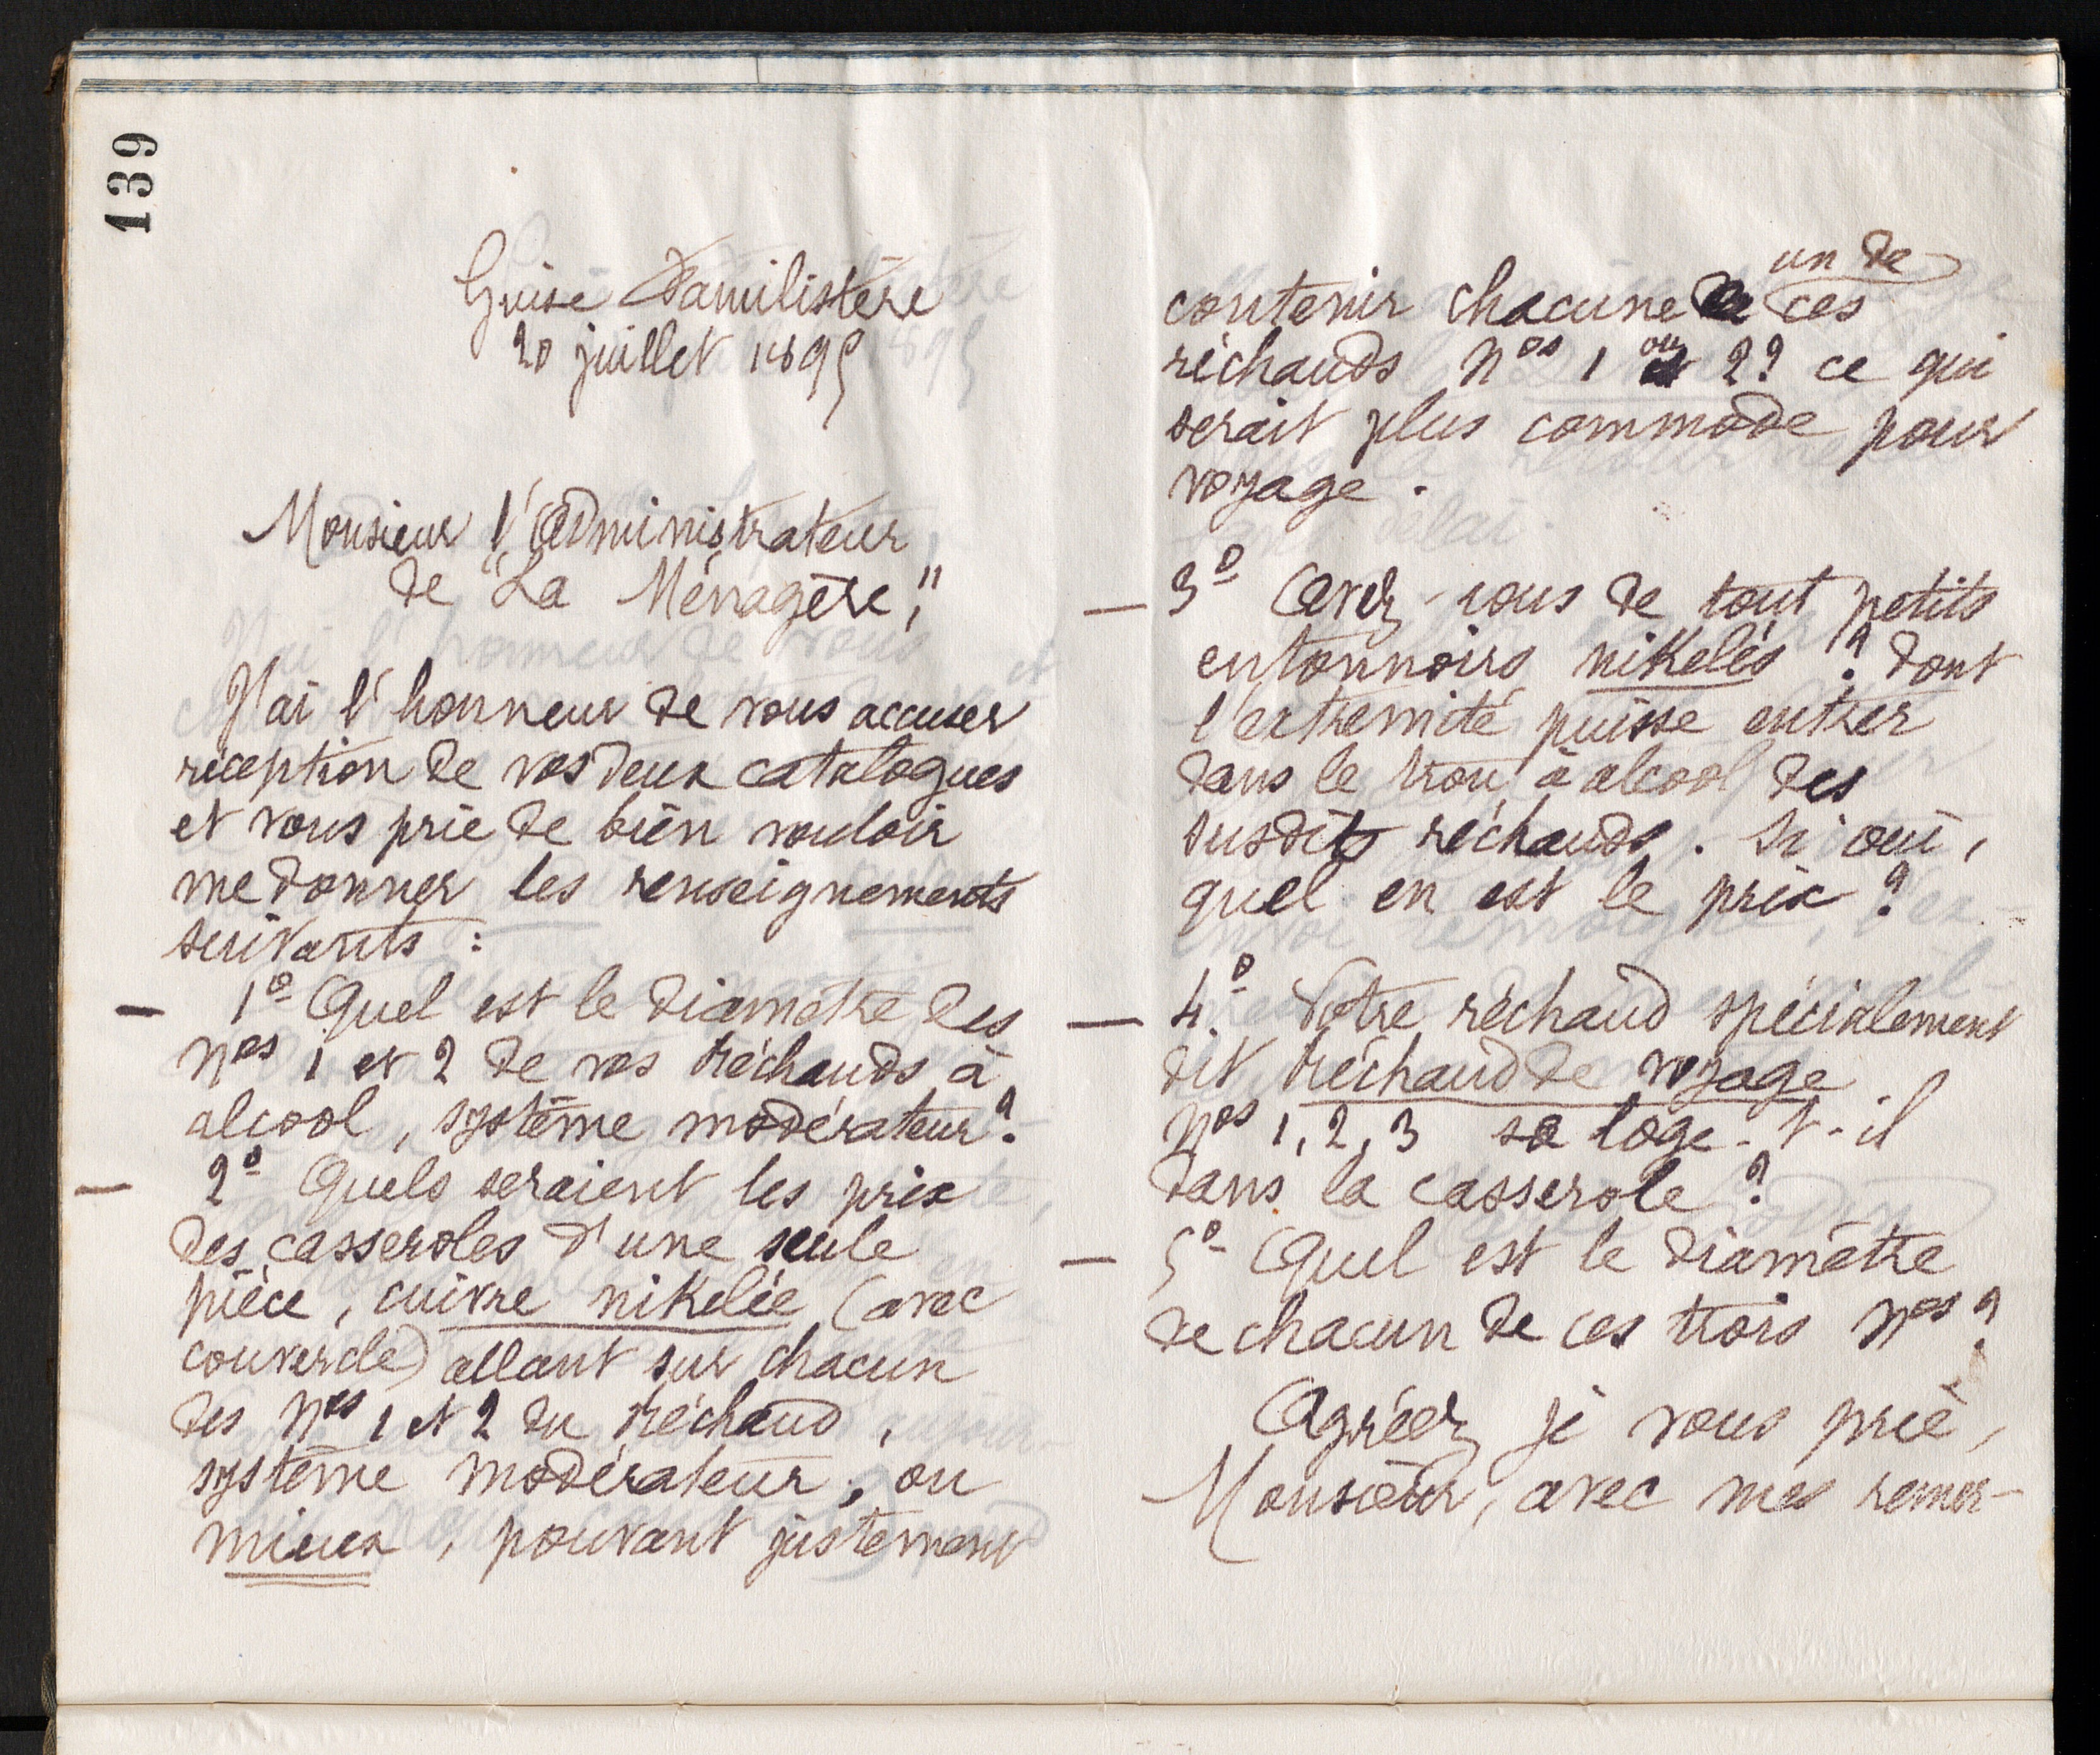 139
Guise Familistère
20 juillet 1895
Monsieur l'Administrateur
de "La Ménagère,"
J'ai l'honneur de vous accuser
réception de vos deux catalogues
et vous prie de bien vouloir
me donner les renseignements
suivants :
— 1º Quel est le diamètre des
Nos 1 et 2 de vos réchauds à
alcool, système modérateur ?
— 2º Quels seraient les prix
des casseroles d'une seule
pièce, cuivre nikelée (avec
couvercle) allant sur chacun
des Nos 1 et 2 du réchaud,
système modérateur ; ou
mieux, pouvant justement
contenir chacune un de ces
réchauds Nos 1 ou 2 ? ce qui
serait plus commode pour
voyage.
— 3º Avez-vous de tout petits
entonnoirs nikelés ? dont
l'extremité puisse entrer
dans le trou à alcool des
susdits réchauds. Si oui,
quel en est le prix ?
— 4º Votre réchaud spécialement
dit réchaud de voyage
Nos 1, 2, 3 se loge-t-il
dans la casserole ?
— 5º Quel est le diamètre
de chacun de ces trois Nos ?
Agréez je vous prie,
Monsieur, avec mes remer-